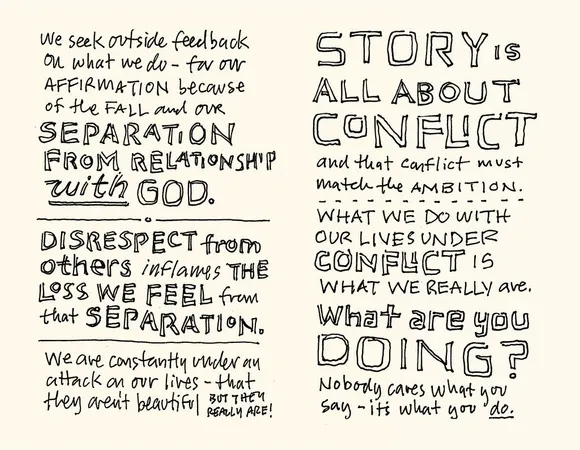 We seek outside feedback
on what we do - for our
AFFIRMATION because
of the FALL and our
SEPARATION
FROM RELATIONSHIP
with GOD.
DISRESPECT from
others inflames THE
LOSS WE FEEL from
that SEPARATION.
We are constantly under an
attack on our lives - that
they aren't beautiful BUT THEY
REALLY ARE!
STORY is
ALL ABOUT
CONFLICT
and that conflict must
match the AMBITION.
WHAT WE DO WITH
OUR LIVES UNDER
CONFLICT IS
WHAT WE REALLY are.
What are you
DOING?
Nobody cares what you
say - it's what you do.